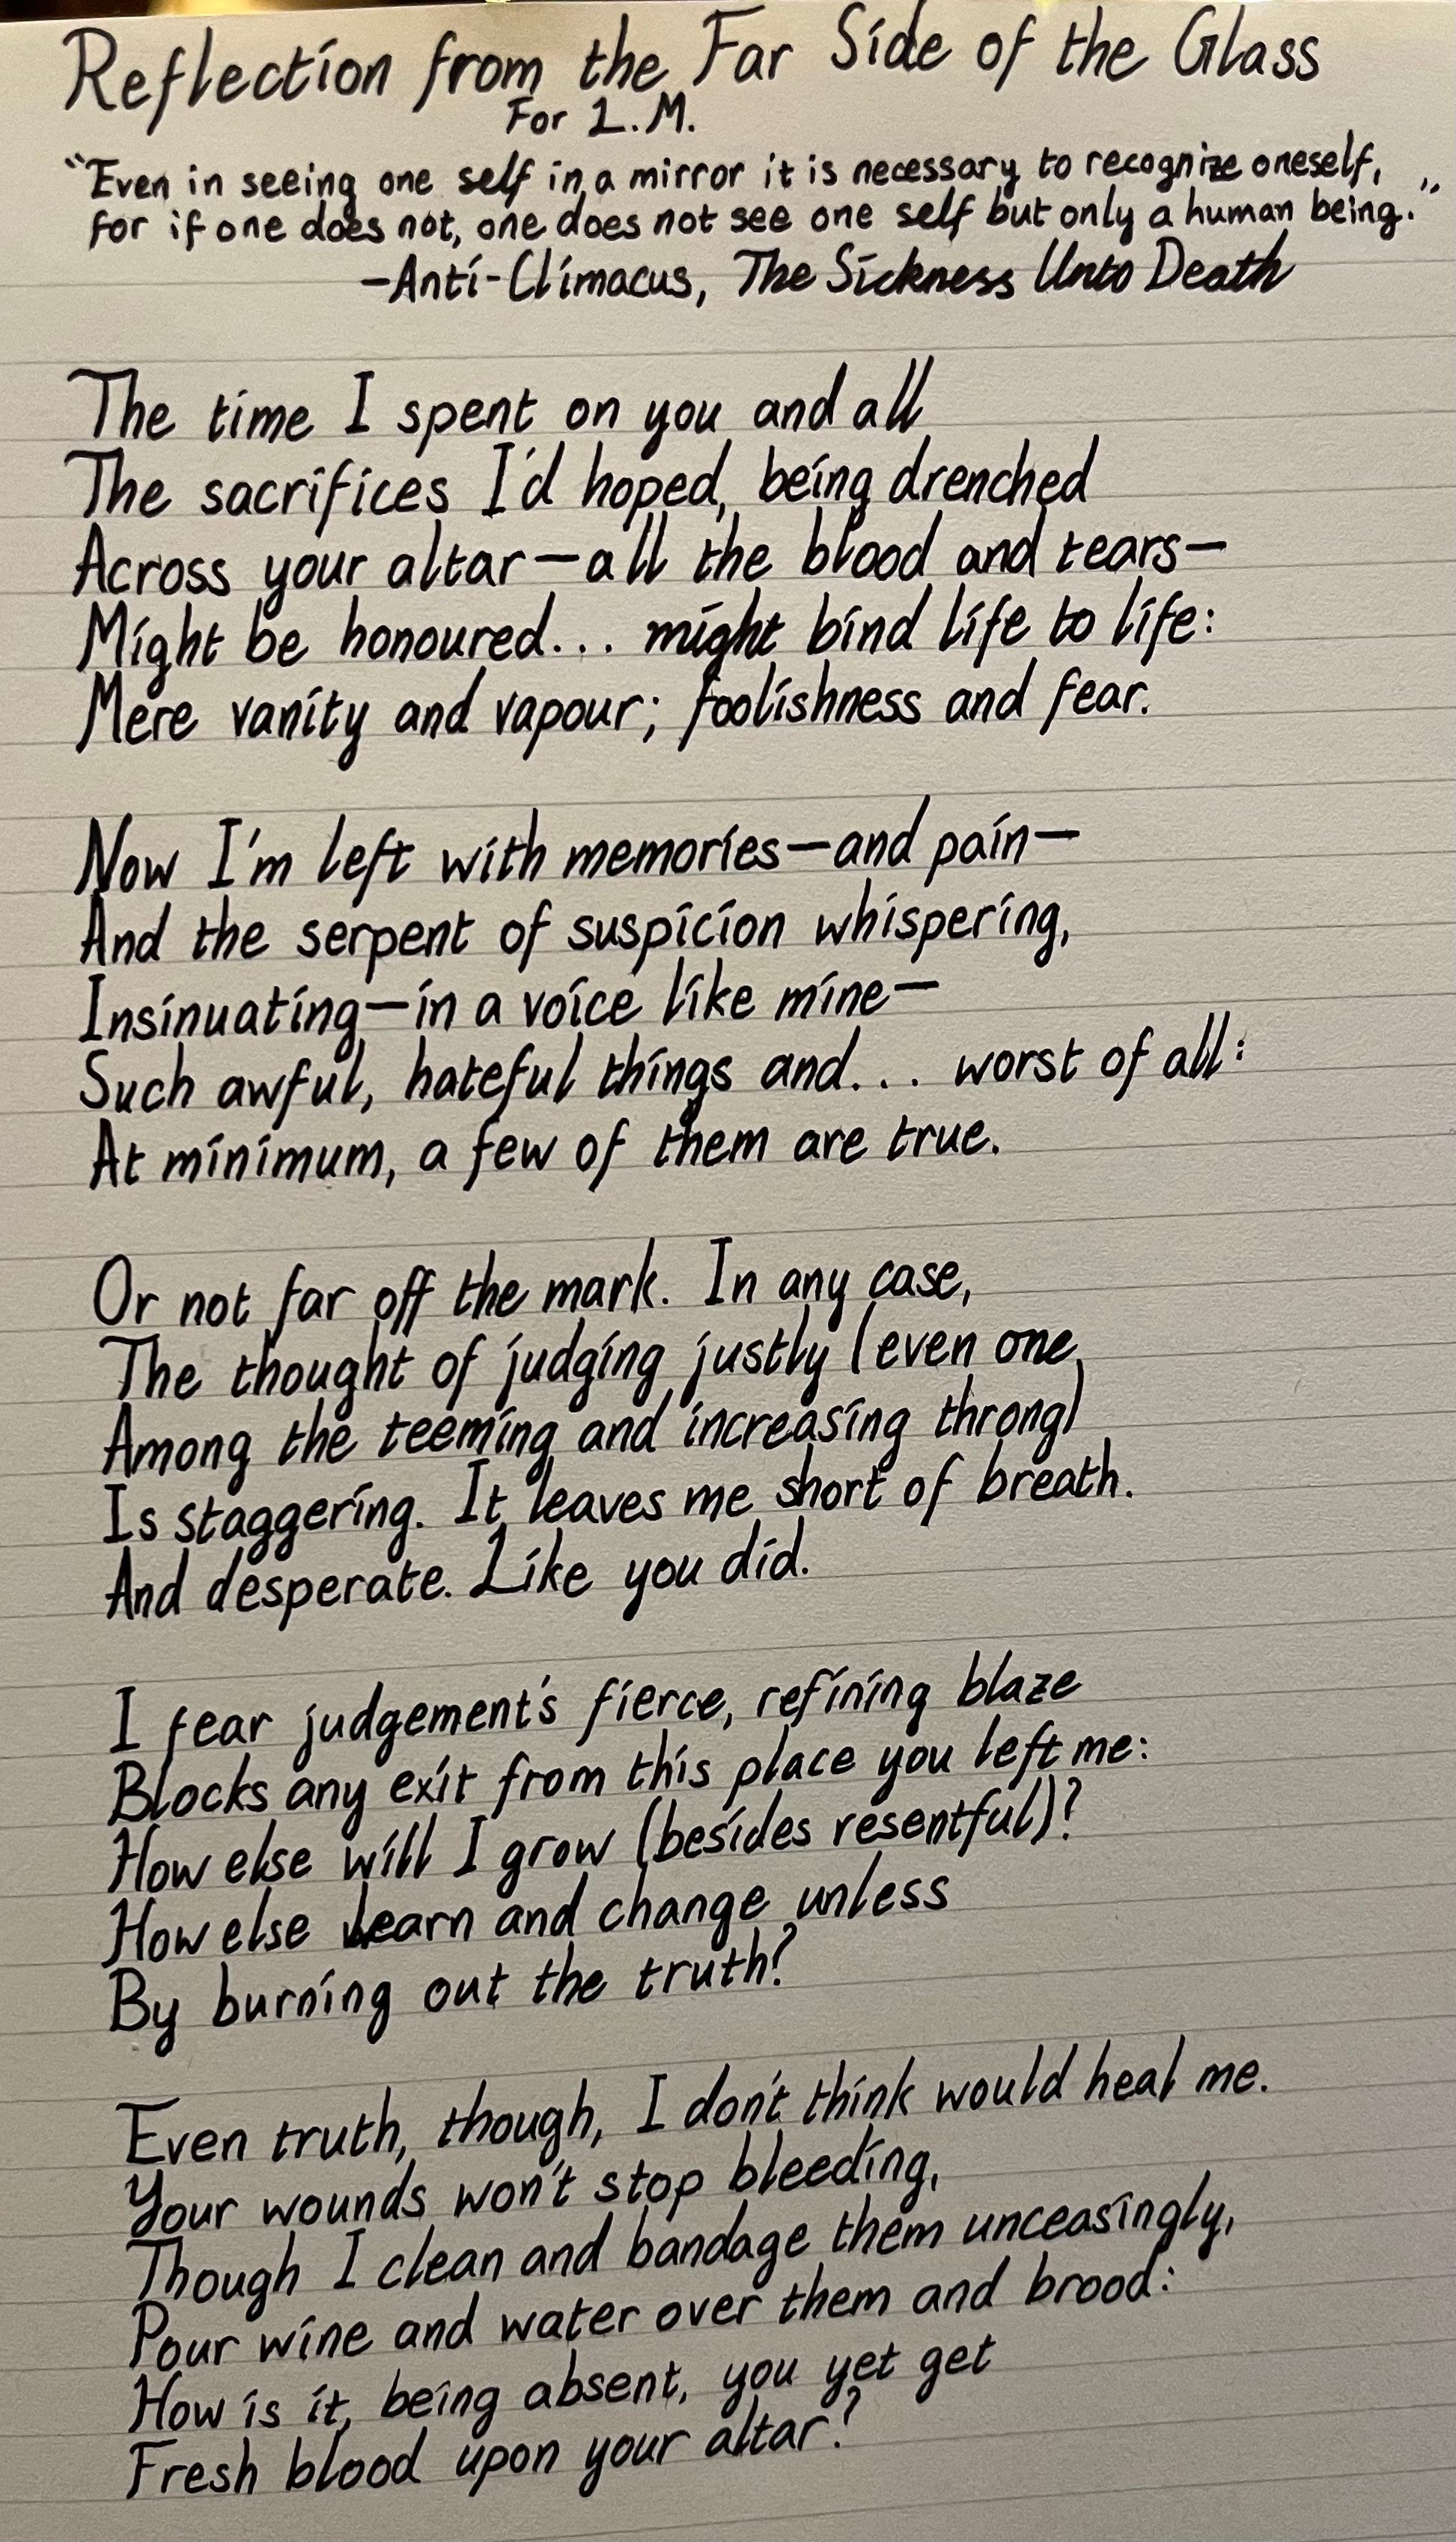 Reflection from the Far Side of the Glass
For L.M.
"Even in seeing one self in a mirror it is necessary to recognize oneself,
for if one does not, one does not see one self but only a human being."
-Anti-Climacus, The Sickness Unto Death
The time I spent on you and all
The sacrifices I'd hoped, being drenched
Across your altar—all the blood and tears—
Might be honoured... might bind life to life:
Mere vanity and vapour; foolishness and fear.
Now I'm left with memories—and pain—
And the serpent of suspicion whispering,
Insinuating—in a voice like mine—
Such awful, hateful things and... worst of all:
At minimum, a few of them are true.
Or not far off the mark. In any case,
The thought of judging justly (even one
Among the teeming and increasing throng)
Is staggering. It leaves me short of breath.
And desperate. Like you did.
I fear judgement's fierce, refining blaze
Blocks any exit from this place you left me:
How else will I grow (besides resentful)?
How else learn and change unless
By burning out the truth?
Even truth, though, I don't think would heal me.
Your wounds won't stop bleeding,
Though I clean and bandage them unceasingly,
Pour wine and water over them and brood:
How is it, being absent, you yet get
Fresh blood upon your altar?